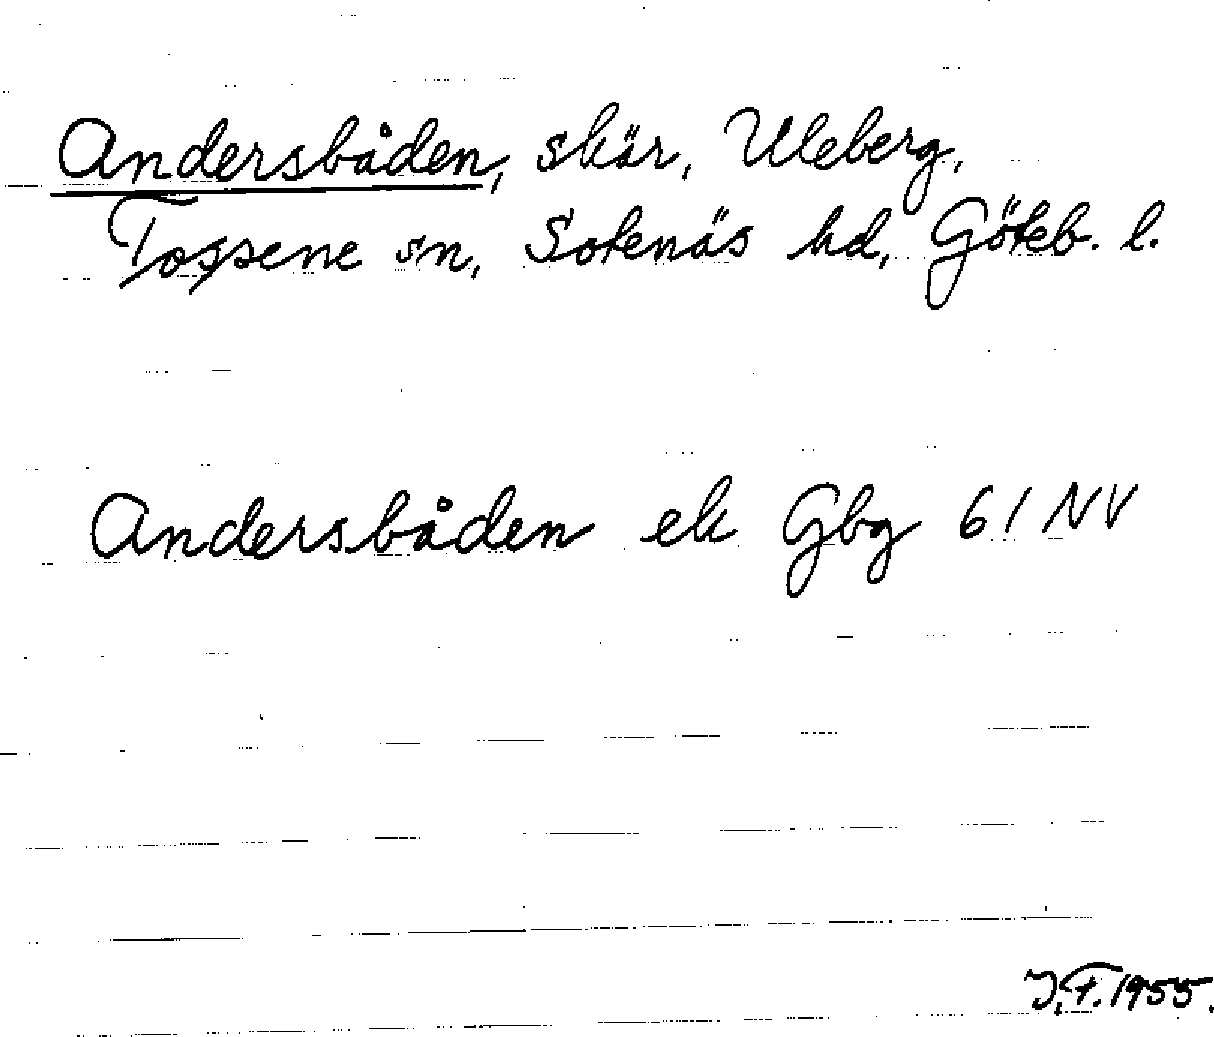 Andersbåden, skär, Uleberg,
Tossene sn, Sotenäs hd, Göteb. l.
Andersbåden ek Gbg 61 NV
J.F. 1955.